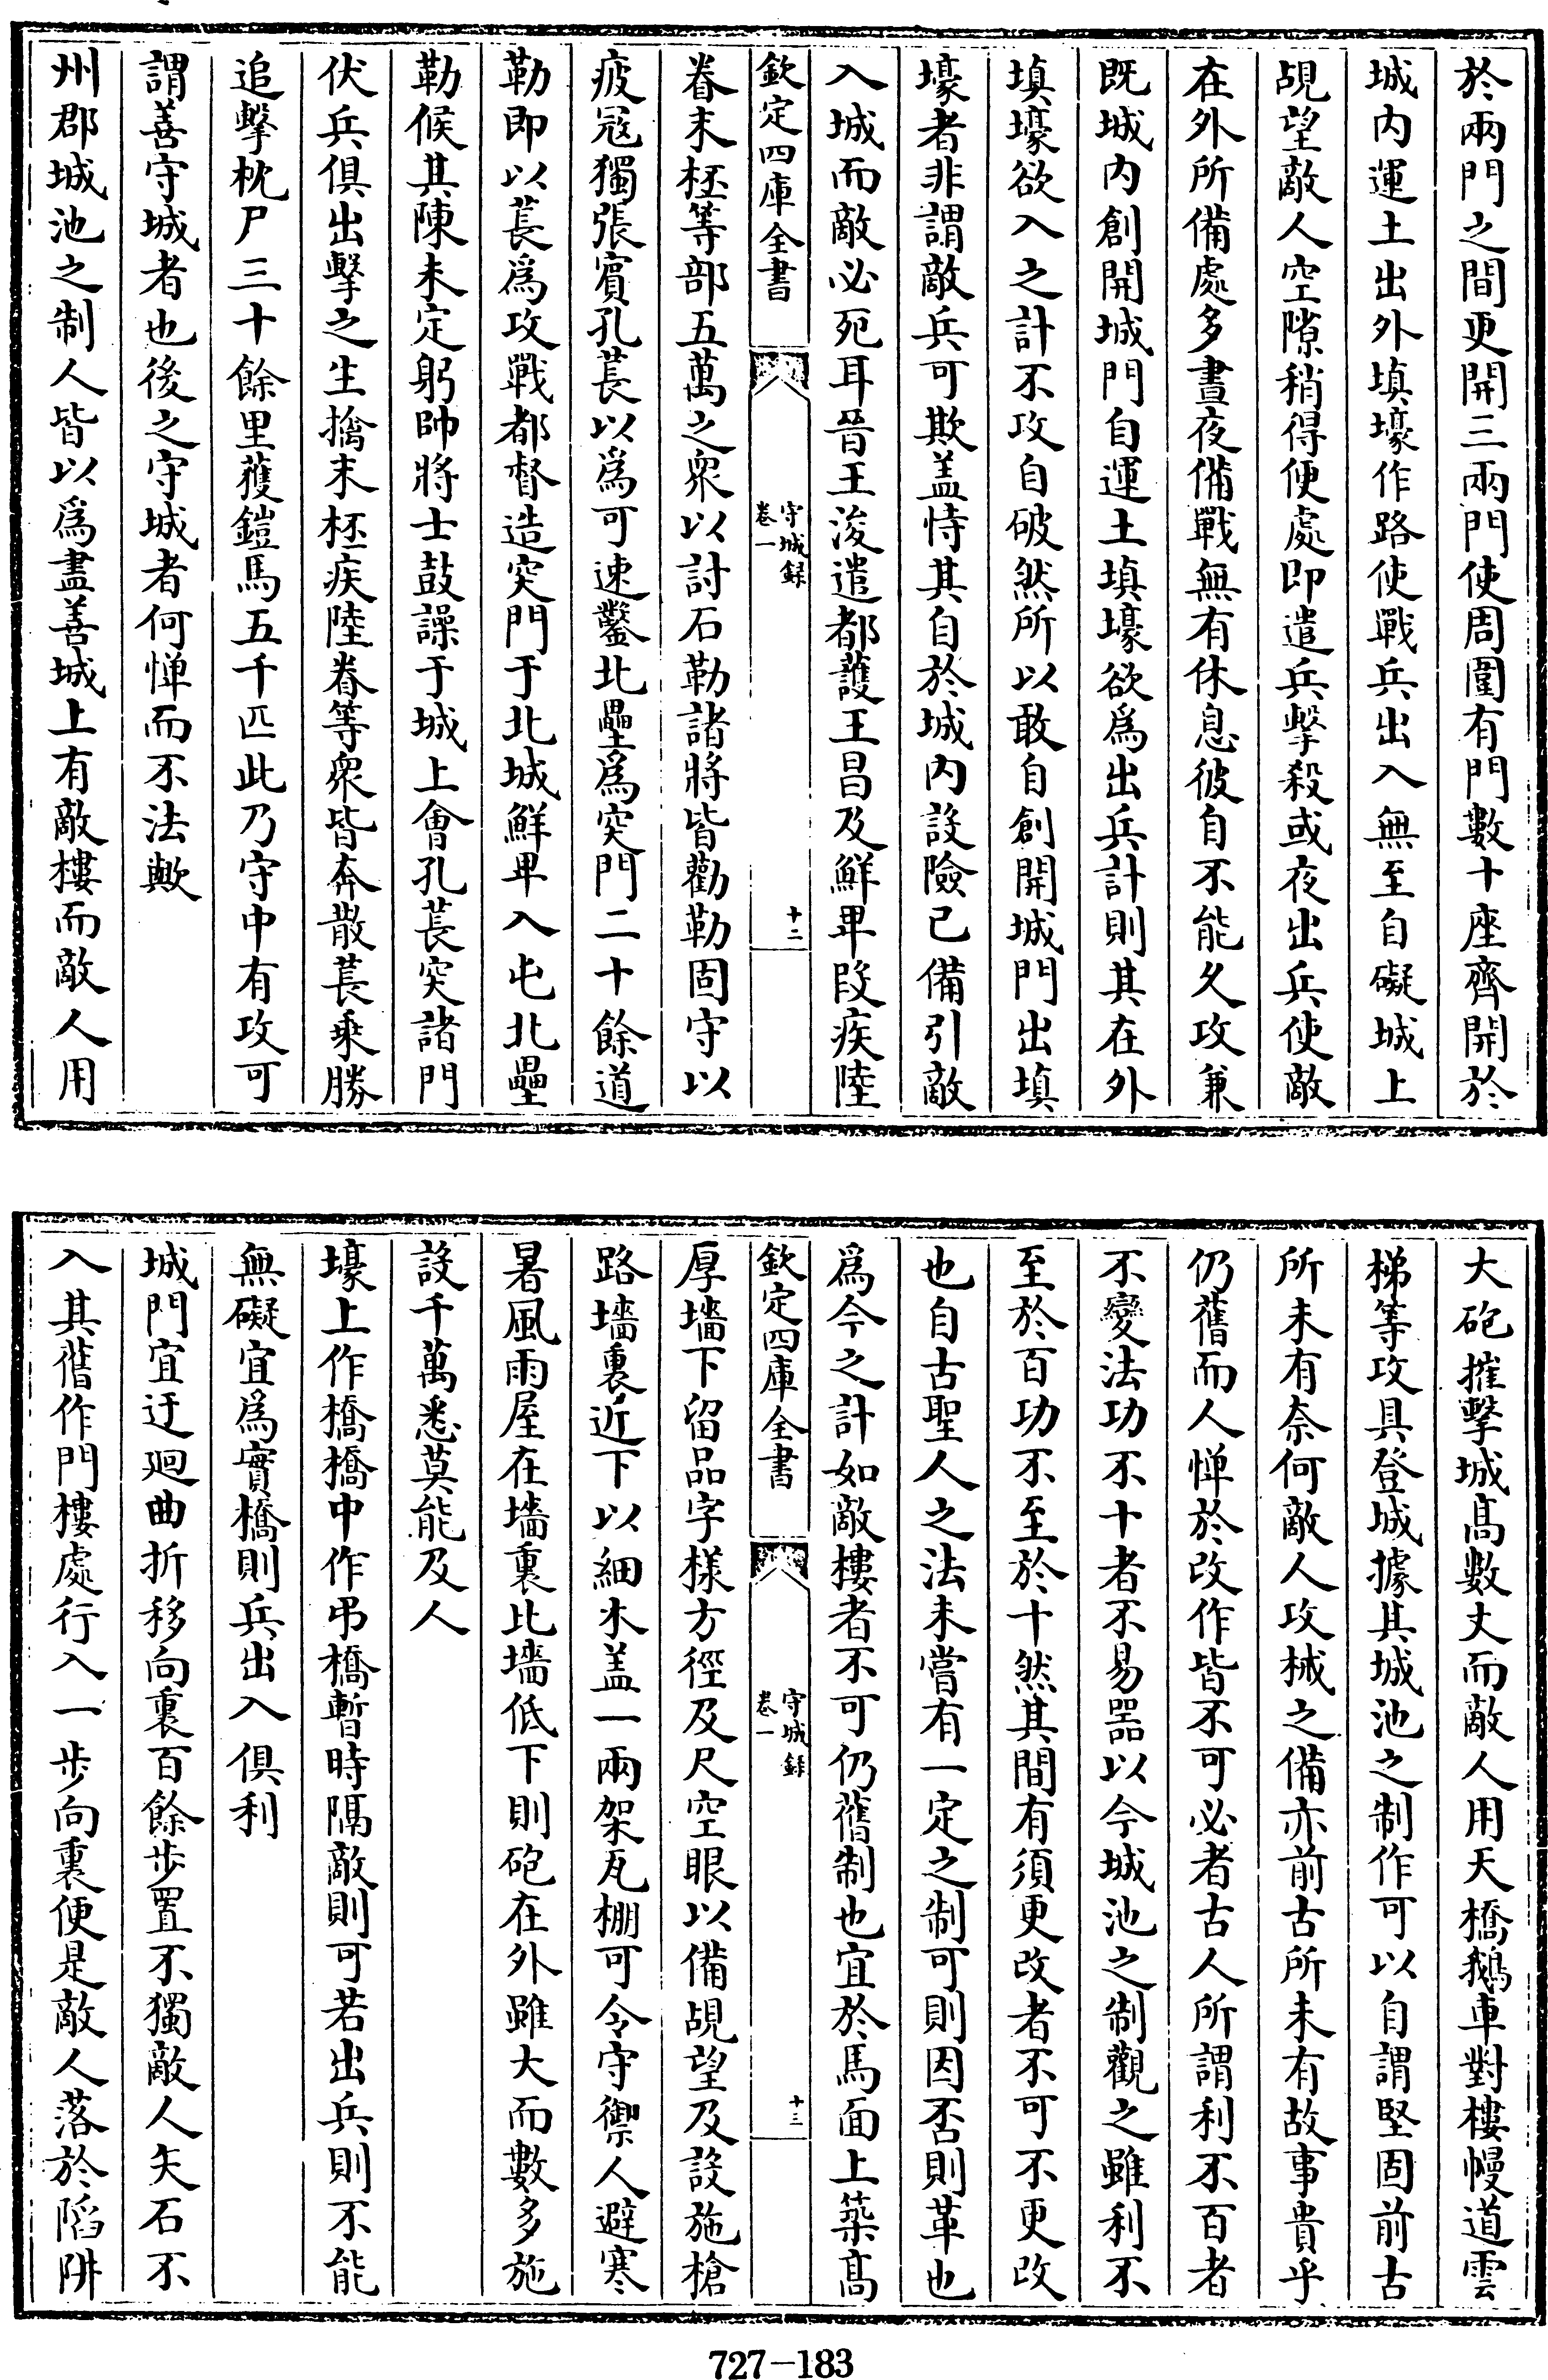 於兩門之間更開三兩門使周圍有門數十座齊開於
城内運土出外填壕作路使戰兵出入無至自礙城上
覘望敵人空隙稍得便處即遣兵擊殺或夜出兵使敵
在外所備處多晝夜備戰無有休息彼自不能久攻兼
既城内創開城門自運土填壕欲爲出兵計則其在外
填壕欲入之計不攻自破然所以敢自創開城門出填
壕者非謂敵兵可欺盖恃其自於城内設險已備引敵
入城而敵必死耳晉王浚遣都護王昌及鮮卑段疾陸
欽定四庫全書
守城録
卷一
十二
眷末柸等部五萬之衆以討石勒諸將皆勸勒固守以
疲宼獨張賓孔萇以爲可速鑿北壘爲突門二十餘道
勒即以萇爲攻戰都督造突門于北城鮮卑入屯北壘
勒候其陳未定躬帥將士鼓譟于城上㑹孔萇突諸門
伏兵俱出擊之生擒末柸疾陸眷等衆皆奔散萇乘勝
追擊枕尸三十餘里獲鎧馬五千匹此乃守中有攻可
謂善守城者也後之守城者何憚而不法歟
州郡城池之制人皆以爲盡善城上有敵樓而敵人用
大砲摧擊城髙數丈而敵人用天橋鵝車對樓幔道雲
梯等攻具登城據其城池之制作可以自謂堅固前古
所未有奈何敵人攻械之備亦前古所未有故事貴乎
仍舊而人憚於改作皆不可必者古人所謂利不百者
不變法功不十者不易噐以今城池之制觀之雖利不
至於百功不至於十然其間有須更改者不可不更改
也自古聖人之法未嘗有一定之制可則因否則革也
爲今之計如敵樓者不可仍舊制也宜於馬面上築髙
欽定四庫全書
守城録
卷一
十三
厚墻下留品字様方徑及尺空眼以備覘望及設施槍
路墻裏近下以細木盖一兩架瓦棚可令守禦人避寒
暑風雨屋在墻裏比墻低下則砲在外雖大而數多施
設千萬悉莫能及人
壕上作橋橋中作弔橋暫時隔敵則可若出兵則不能
無礙宜爲實橋則兵出入俱利
城門宜迂廻曲折移向裏百餘步置不獨敵人矢石不
入其舊作門樓處行入一步向裏便是敵人落於䧟阱
727-183